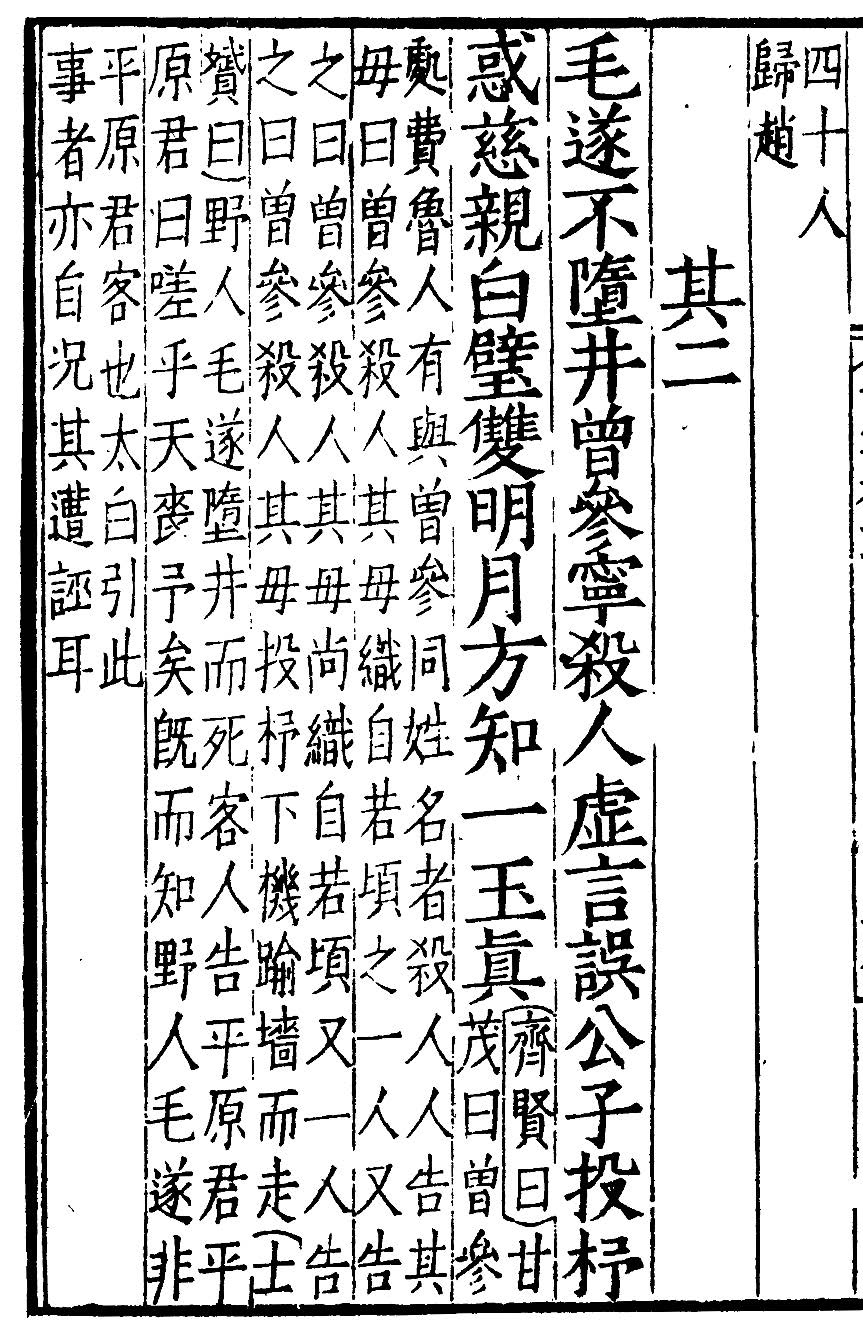 四十人
歸趙
其二
毛遂不墮井曾參寧殺人虛言誤公子投杼
惑慈親白璧雙明月方知一玉眞
齊賢曰甘
茂曰曾參
處費魯人有與曾參同姓名者殺人人告其
毋曰曾參殺人其毋織自若頃之一人又告
之曰曾參殺人其毋尚織自若頃又一人告
之曰曾參殺人其毋投杼下機踰墻而走士
贇曰野人毛遂墮井而死客人告平原君平
原君曰嗟乎天喪予矣旣而知野人毛遂非
平原君客也太白引此
事者亦自况其遭誣耳